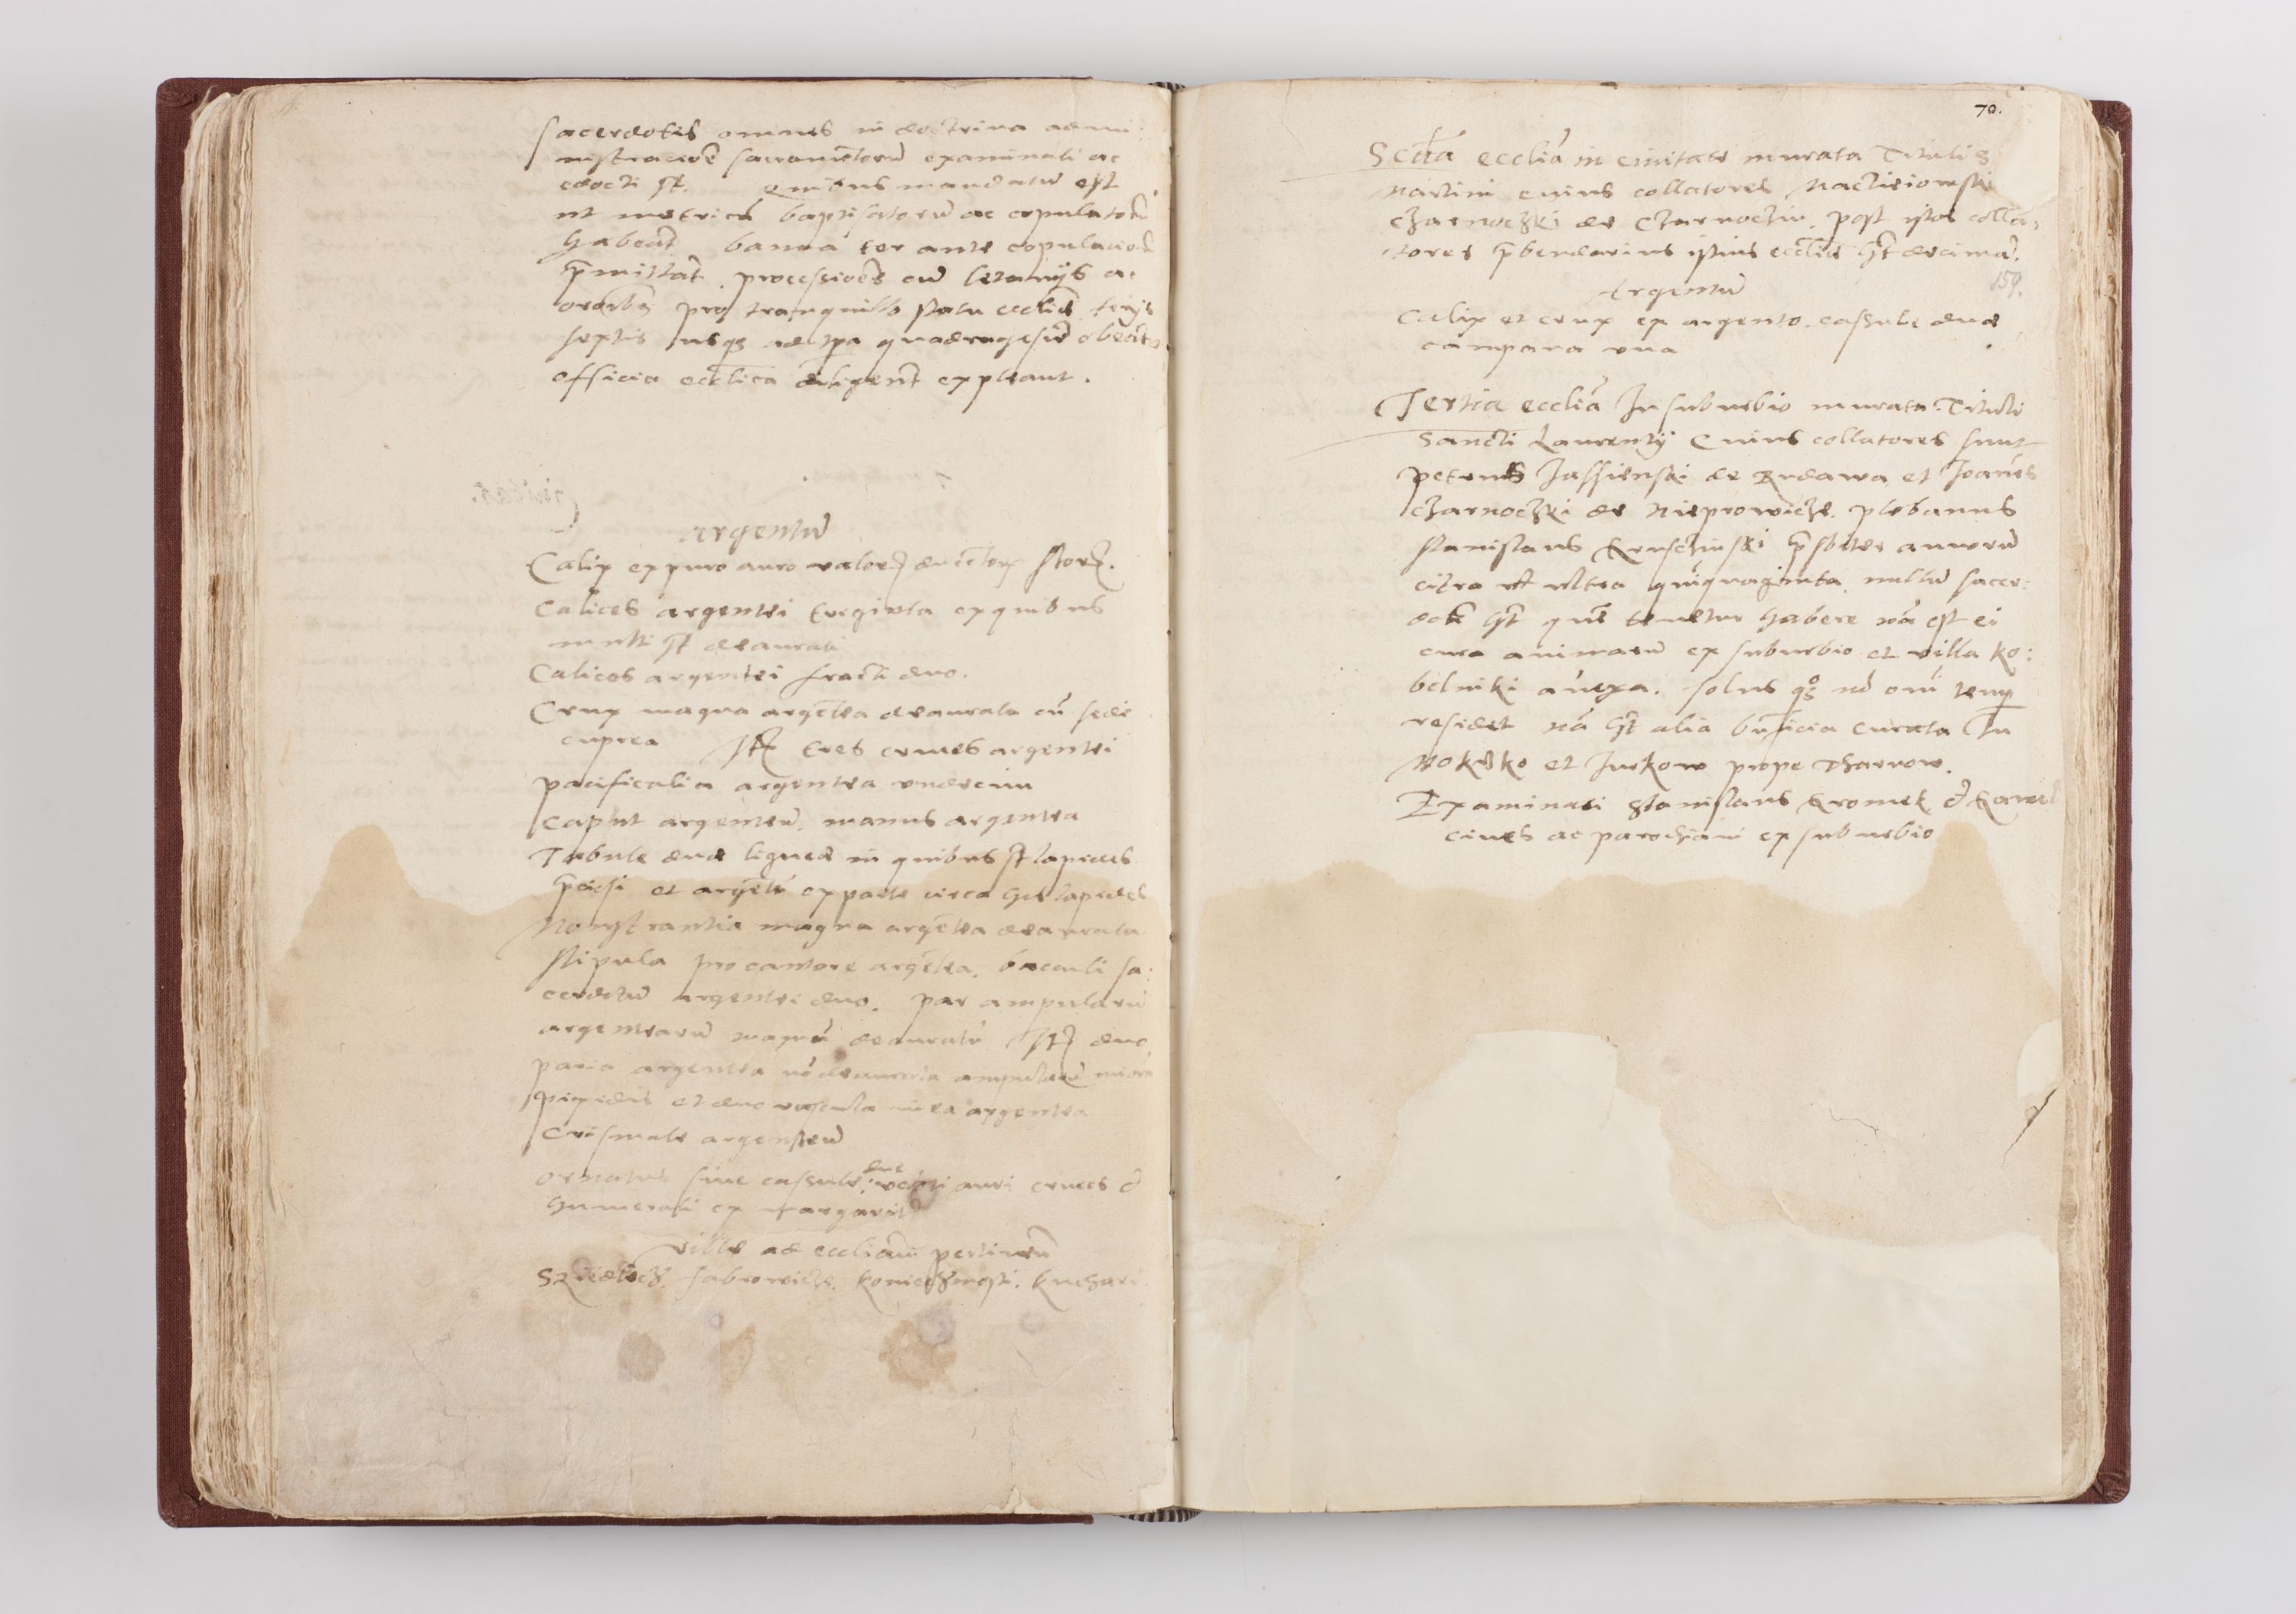 sacerdotes omnes in doctrina admi:
nistracioē sacramētorū examinati ac
edocti st. quibus mandatū est
ut metricā baptisatorū ac copulatorū
habeāt banna ter ante copulacionē
p̄mittāt, processioēs cū letanijs ac
orāibꝫ pro tranquillo statu eccliē ferijs
septis usqꝫ ad tp̄a quadragesime obeāt
officia eccl̄ica diligent̄ expleant.
argentū
Calix ex puro auro valoris florꝫ.
Calices argentei triginta ex quibus
multi st deaurati
Calices argentei fracti duo.
Crux magna argētea deaurata cū sede
cuprea Itꝫ tres cruces argentei
pacificalia argentea undecim
Caput argenteū, manus argentea
Tabule due ligneæ in quibus st lapides
p̄ciosi et argētū ex parte circa hos lapides
Monstrantia magna argētea deaurata
stipula pro cantore argētea, baculi sa:
cerdotū argentei duo. par ampularū
argentearū magnū deauratū Itꝫ duo
paria argentea nō deaurata ampularū
pixides et duo argentea
Crismale argenteū
ornatus sive cassule due: auri cruces &
humerali ex margaritis
ville ad eccliam pertinen
Jabrowicze. koniecżmosti. kuchari.
70.
Scd̄a ecclīa in civitate murata Tituli S
Martini cuius collatores
Czarnoczki de Czarnoczin. post istos colla:
tores p̄bendarius istius eccliē h̄t decimā.
159.
Argentū
Calix et crux ex argento. cassule duæ
campana una
Tertia ecclīa In suburbio murata. Tituli
Sancti Laurentij Cuius collatores sunt
petrus Jassienski de Rudawa et Joānes
Czarnoczki de Nieprowicze. plebanus
Stanislaus Kruschinski p̄sbiter annorū
citra vel ultra quīquaginta. nullū sacer:
dotē h̄t quē tenetur habere nā est ei
cura animarū ex suburbio et villa ko:
belniki ānexa. solus qꝫ nō omī temp
residet nā h̄t alia bn̄ficia curata In
Mokrsko et Jurkow prope Tharnow.
Examinati Stanislaus Kromek &
cives ac parochiani ex suburbio